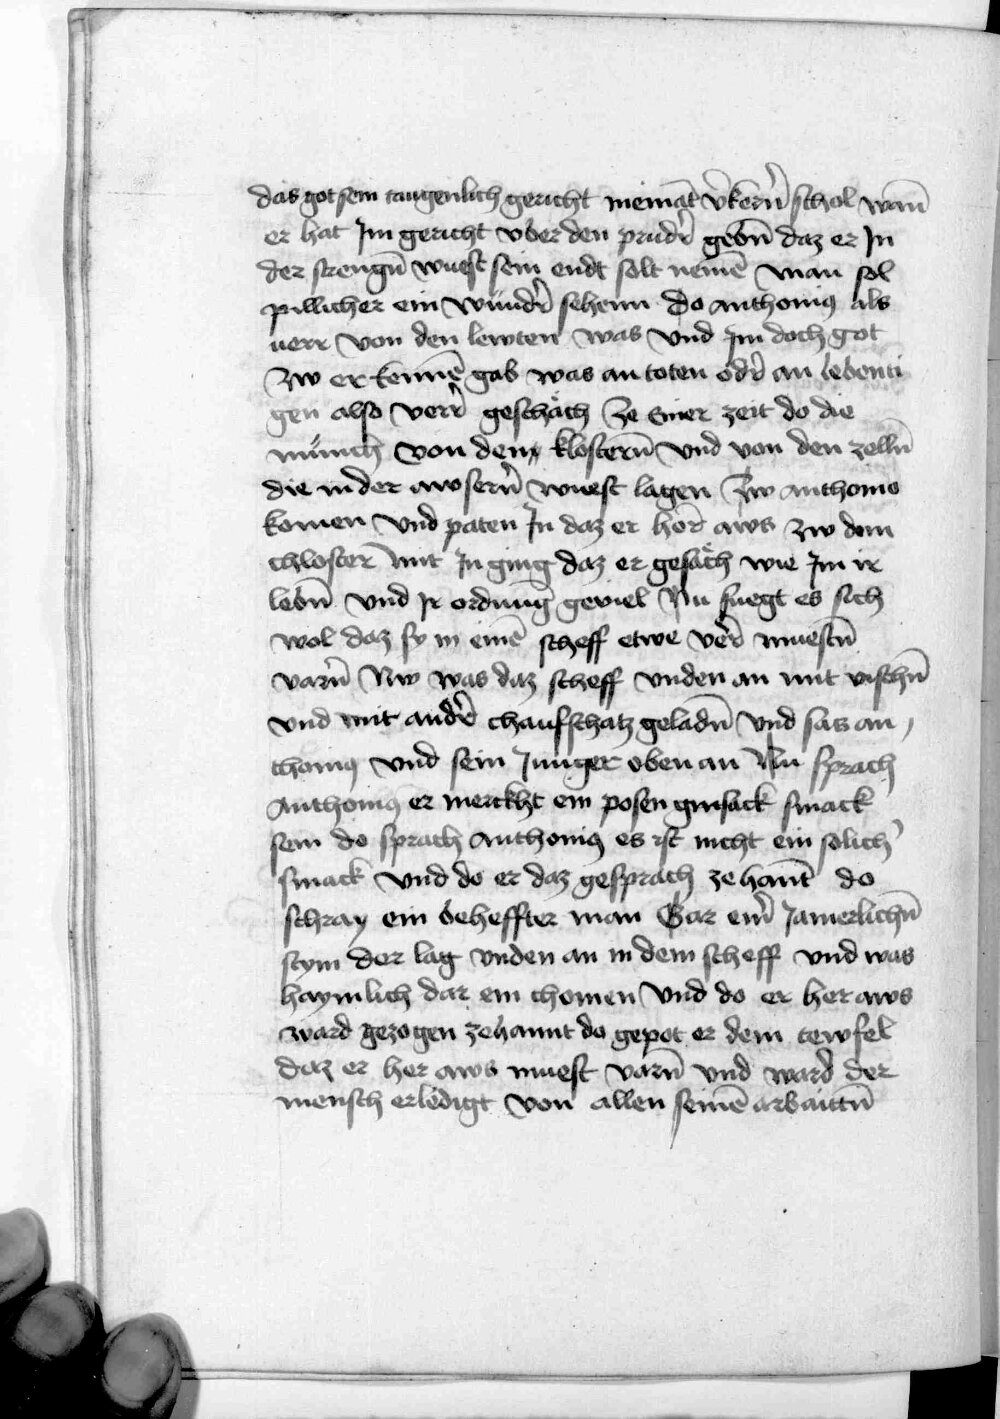 das got sein taugenlich gericht niemāt v̄kern̄ schol wan̄
er hat Jm gericht vber den prudr̄ gebn̄ daz er Jn
der strengn̄ wuest sein endt solt nemē Man sol
pillicher ein wundr̄ sehenn do anthoniꝰ als
uerr von den lewten was Vnd Jm doch got
Zw erkennē gab was an toten odr̄ an lebenti
gen also verr̄ geschäch Ze einer zeit do die
münch von dem klostern̄ Vnd von den zelln̄
die in der awsern̄ wuest lagen Zw anthonio
komen Vnd paten Jn daz er her aws zw dem
chloster mit Jn ging daz er gesäch wie Jm ir
lebn̄ Vnd Jr ordnung geviel Nu fuegt es sich
wol daz sy in einē scheff etwe ver̄ muestn̄
varn̄ Nw was daz scheff vnden an mit vischn̄
vnd mit andr̄ chaufschatz geladn̄ Vnd sas an
thoniꝰ Vnd sein Junger oben an Nu sprach
Anthoniꝰ er merckht ein posen smack
sein do sprach Anthoniꝰ es ist nicht ein solich̄
smack Vnd do er daz gesprach ze hant do
schray ein beheffter man Gar ein̄ Jamerlichn̄
stym der lag vnden an in dem scheff Vnd was
haymlich dar ein chomen Vnd do er her aws
ward gezogen zehannt do gepot er dem tewfel
daz er her aws muest varn̄ Vnd ward der
mensch erledigt von allen seinē arbaittn̄